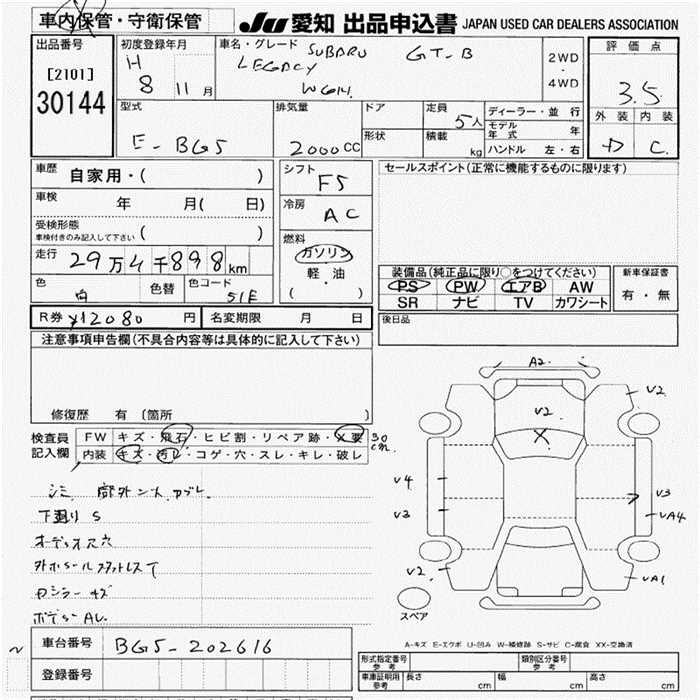 車内保管・守衛保管 JU 愛知 出品申込書 JAPAN USED CAR DEALERS ASSOCIATION
出品番号
[2101]
30144
初度登録年月
H 8 11 月
車名・グレード SUBARU GT-B
LEGACY
WGN.
2WD
・
4WD
評価点
3.5
外装 内装
D C.
型式
E-BG5
排気量
2000CC
ドア
形状
定員 5人
積載 kg
ディーラー・並行
モデル年式 年
ハンドル 左・右
車歴 自家用・( )
車検 年 月( 日)
受検形態
車検付きのみ記入して下さい ( )
走行 29万4千898km
色 白 色替 色コード 51E
シフト
F5
冷房
AC
燃料
ガソリン
軽・油
( )
セールスポイント(正常に機能するものに限ります)
装備品(純正品に限り○をつけてください)
PS PW エアB AW
SR ナビ TV カワシート
新車保証書
有・無
R券 ¥12080 円 名変期限 月 日
後日品
注意事項申告欄(不具合内容等は具体的に記入して下さい)
修復歴 有 〔箇所 〕
検査員
記入欄
FW キズ・飛石・ヒビ割・リペア跡・X要 30cm
内装 キズ・汚レ・コゲ・穴・スレ・キレ・破レ
下廻り S
オーディオ穴
ボデーAL.
車台番号 BG5-202616
登録番号
A2.
V2
V2.
X
V4
V3
V3
VA4
V2.
VA1
スペア
A-キズ E-エクボ U-凹み W-補修跡 S-サビ C-腐食 XX-交換済
形式指定番号
参考
類別区分番号
参考
車庫証明用
参考
長さ cm 幅 cm 高さ cm